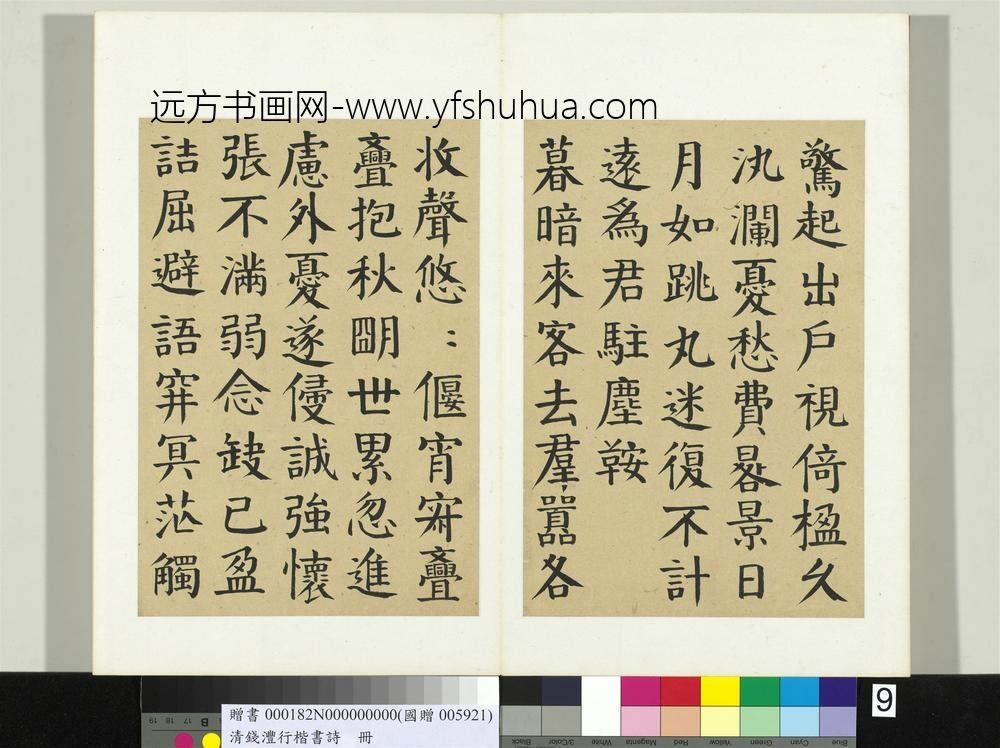 远方书画网-www.yfshuhua.com
驚起出戶視倚楹久
汍瀾憂愁費晷景日
月如跳丸迷復不計
遠為君駐塵鞍
暮暗來客去羣囂各
收聲悠〻偃宵寂亹
亹抱秋朙世累忽進
慮外憂遂侵誠強懷
張不滿弱念缺已盈
詰屈避語穽冥茫觸
9
贈書 000182N000000000(國贈 005921)
清錢灃行楷書詩 冊
19 18 17 16 B
Black
3/Color
White
Magenta
Red
Yellow
Green
Cyan
Blue